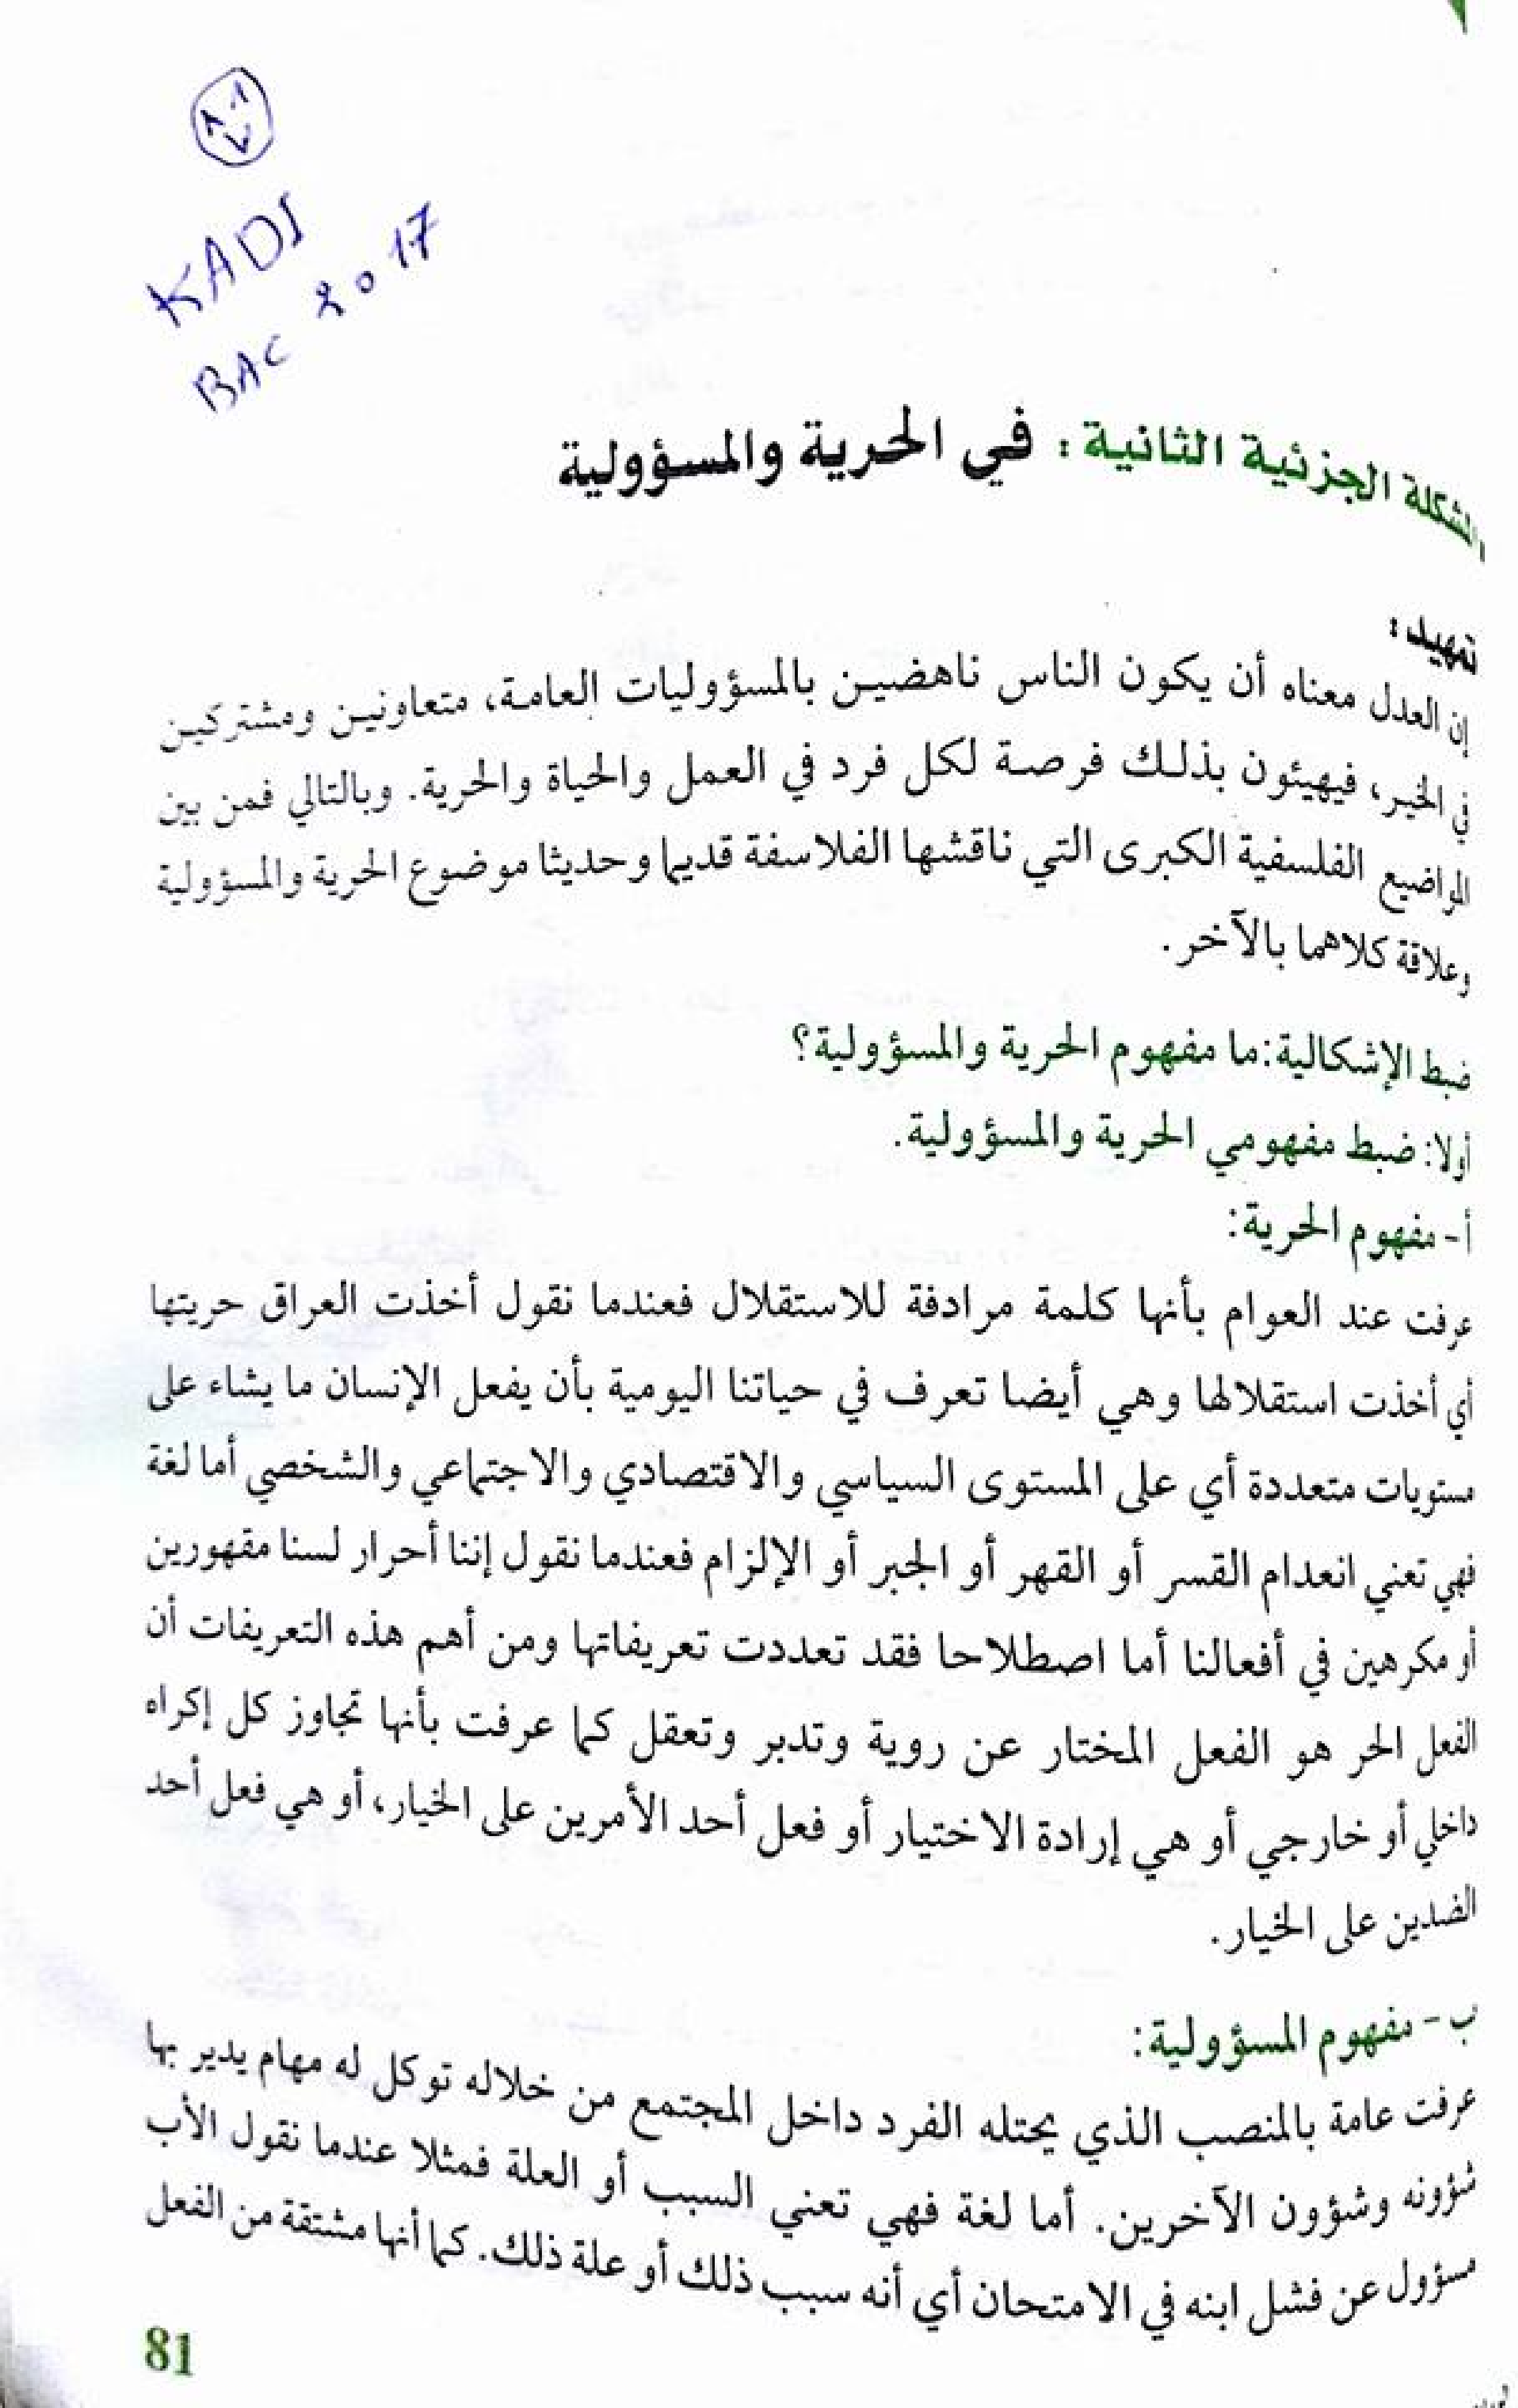 KADI
BAC 2017
المشكلة الجزئية الثانية: في الحرية والمسؤولية
تمهيد:
إن العدل معناه أن يكون الناس ناهضين بالمسؤوليات العامة، متعاونين ومشتركين
في الخير، فيهيئون بذلك فرصة لكل فرد في العمل والحياة والحرية. وبالتالي فمن بين
المواضيع الفلسفية الكبرى التي ناقشها الفلاسفة قديما وحديثا موضوع الحرية والمسؤولية
وعلاقة كلاهما بالآخر.
ضبط الإشكالية: ما مفهوم الحرية والمسؤولية؟
أولا: ضبط مفهومي الحرية والمسؤولية.
أ- مفهوم الحرية:
عرفت عند العوام بأنها كلمة مرادفة للاستقلال فعندما نقول أخذت العراق حريتها
أي أخذت استقلالها وهي أيضا تعرف في حياتنا اليومية بأن يفعل الإنسان ما يشاء على
مستويات متعددة أي على المستوى السياسي والاقتصادي والاجتماعي والشخصي أما لغة
فهي تعني انعدام القسر أو القهر أو الجبر أو الإلزام فعندما نقول إننا أحرار لسنا مقهورين
أو مكرهين في أفعالنا أما اصطلاحا فقد تعددت تعريفاتها ومن أهم هذه التعريفات أن
الفعل الحر هو الفعل المختار عن روية وتدبر وتعقل كما عرفت بأنها تجاوز كل إكراه
داخلي أو خارجي أو هي إرادة الاختيار أو فعل أحد الأمرين على الخيار، أو هي فعل أحد
الضدين على الخيار.
ب- مفهوم المسؤولية:
عرفت عامة بالمنصب الذي يحتله الفرد داخل المجتمع من خلاله توكل له مهام يدير بها
شؤونه وشؤون الآخرين. أما لغة فهي تعني السبب أو العلة فمثلا عندما نقول الأب
مسؤول عن فشل ابنه في الامتحان أي أنه سبب ذلك أو علة ذلك. كما أنها مشتقة من الفعل
81